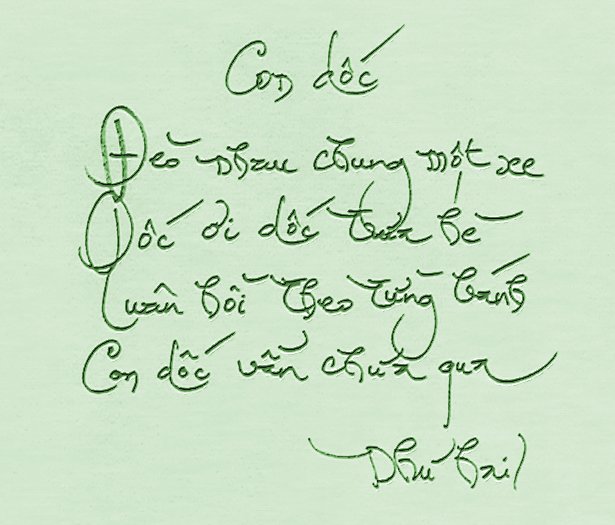 Con dốc
Đèo nhau chung một xe
Dốc ơi dốc trưa hè
Luân hồi theo từng bánh
Con dốc vẫn chưa qua